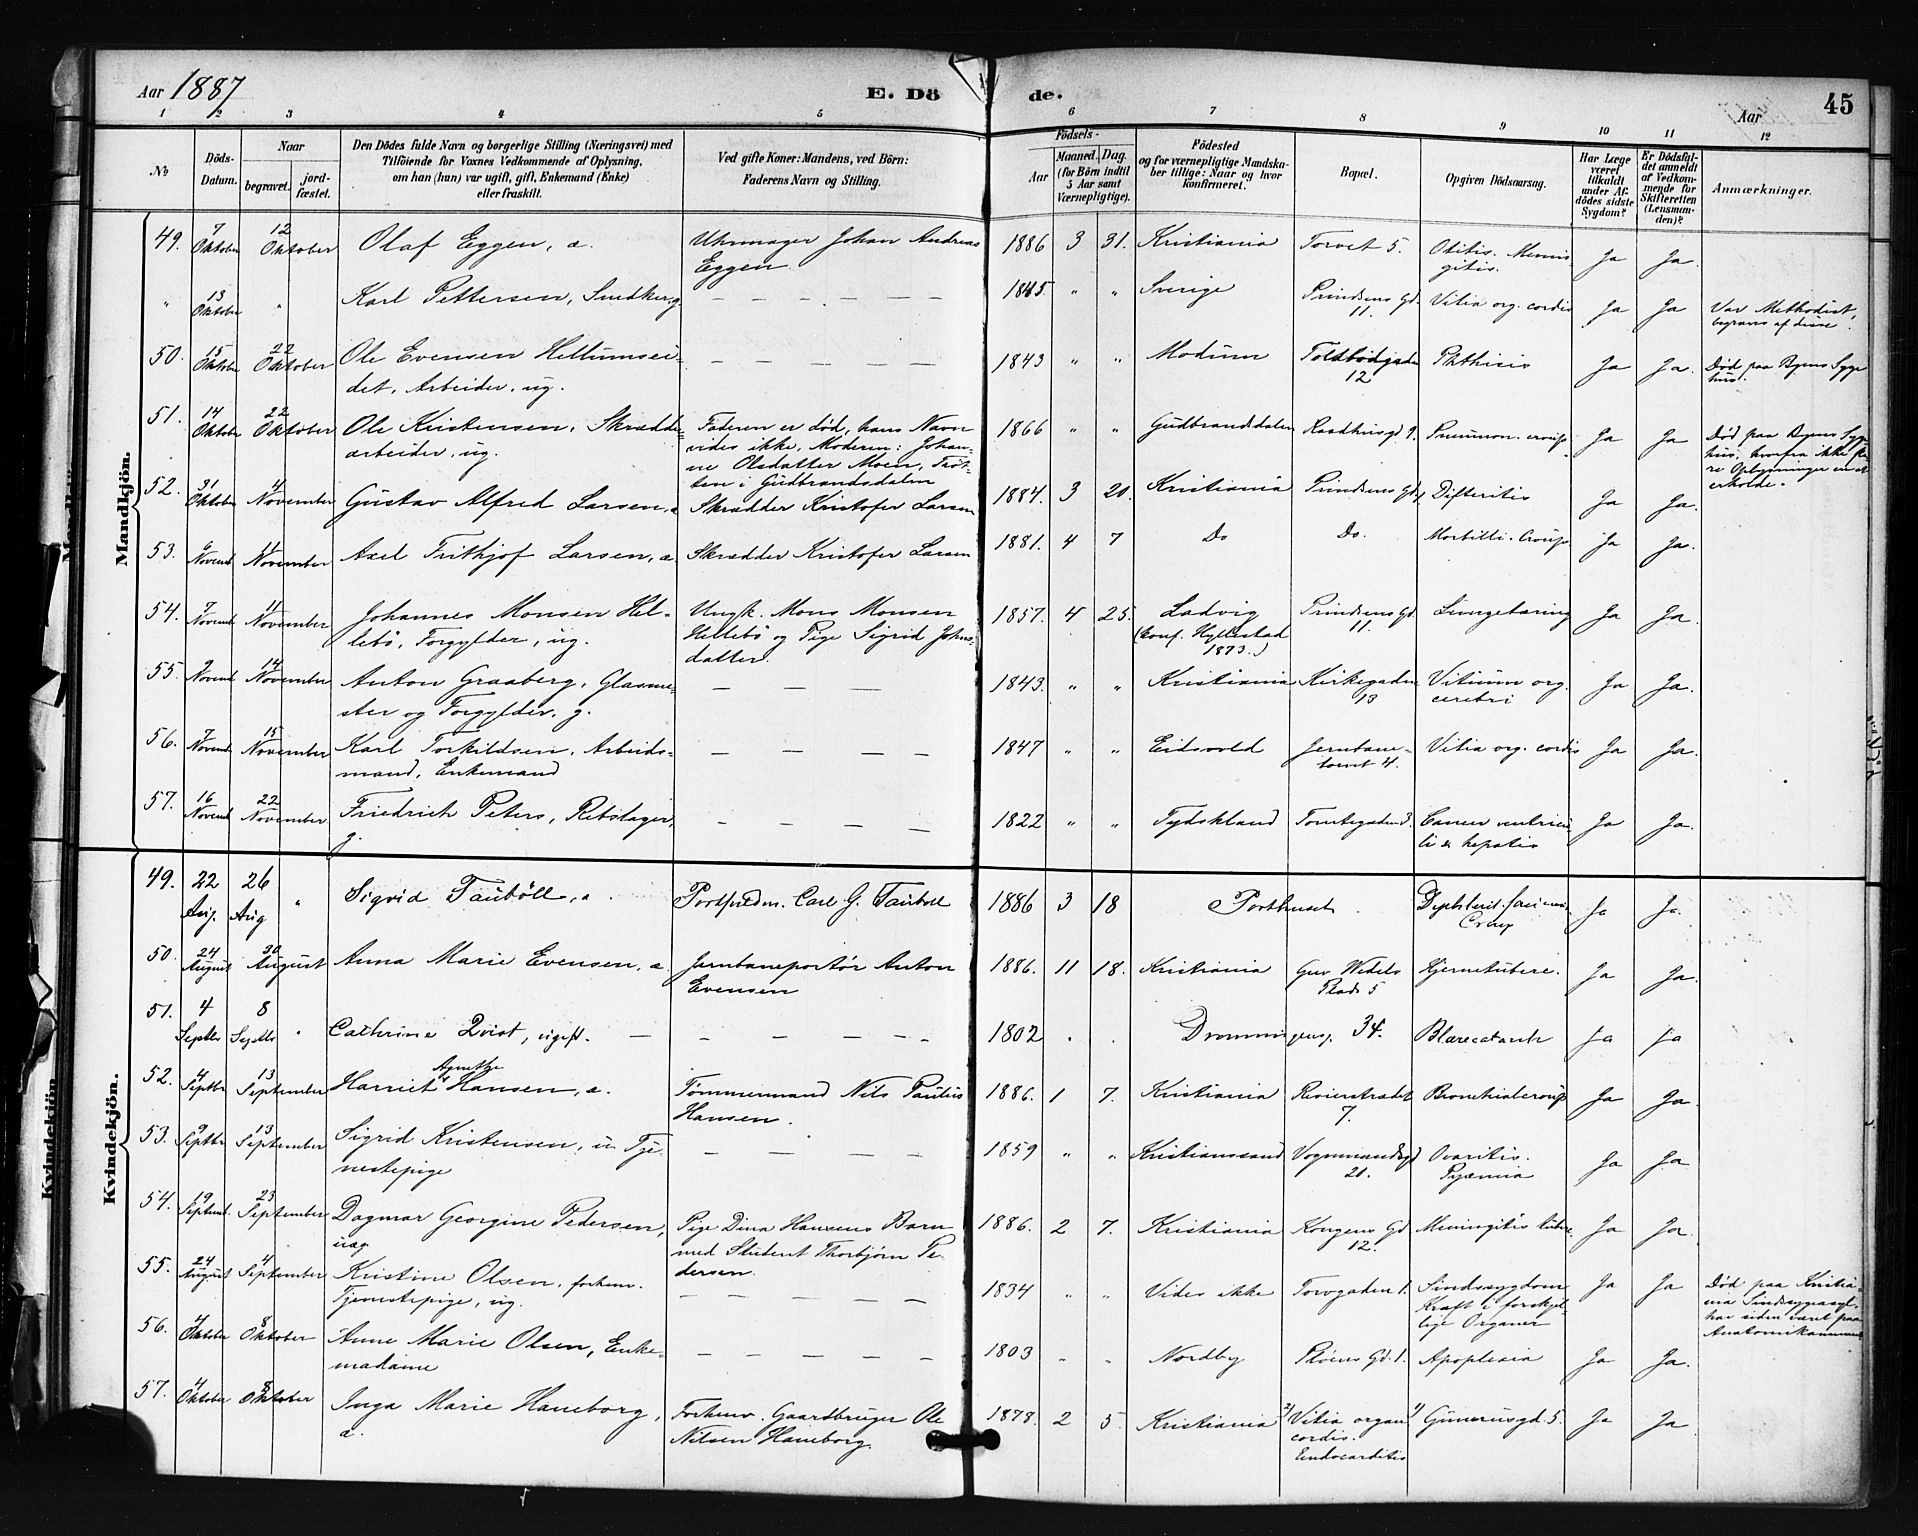 Aar 1887
E. Dö
de.
Aar
45
1 2 3 4 5 6 7 8 9 10 11 12
№
Döds-Datum.
Naar
begravet.
jord-fæstet.
Den Dödes fulde Navn og borgerlige Stilling (Næringsvei) med
Tilföiende for Voxnes Vedkommende af Oplysning,
om han (hun) var ugift, gift, Enkemand (Enke)
eller fraskilt.
Ved gifte Koner: Mandens, ved Börn:
Faderens Navn og Stilling.
Födsels-
Aar
Maaned. Dag.
(for Börn indtil
5 Aar samt
Værnepligtige).
Födested
og for værnepligtige Mandska-
ber tillige: Naar og hvor
konfirmeret.
Bopæl.
Opgiven Dödsaarsag.
Har Læge
været
tilkaldt
under Af-
dödes sidste
Sygdom?
Er Dödsfal-
det anmeldt
af Vedkom-
mende for
Skifteretten
(Lensman-
den)?
Anmærkninger.
Mandkjön.
49. 7 Oktober 12 Oktober Olaf Eggen, a. Uhrmager Johan Andreas
Eggen. 1886 3 31. Kristiania Torvet 5. Otitis. Menin-
gitis. Ja Ja.
" 13 Oktober " Karl Pettersen, Snedker, g. — — — — — — 1845. " " Sverige Prindsens Gd.
11. Vitia org. cordis Ja Ja Var Methodist,
begraves af disse.
50. 15 Oktober 22 Oktober Ole Evensen Hellumsei-
det, Arbeider, ug. — — — — — 1843 " " Modum Toldbodgaden
12 Phthisis Ja Ja. Død paa Byens Syge
hus.
51. 14 Oktober 22 Oktober Ole Kristensen, Skrædder-
arbeider, ug. Faderen er död, hans Navn
vides ikke, Moderen: Johan-
ne Olsdatter Moen, Tret-
ten i Gudbrandsdalen 1866 " " Gudbrandsdalen Raadhusgd 9. Pneumon. croup. Ja Ja Död paa Byens Syge
hus, hvorfra ikke fle-
re Oplysninger var at
erholde.
52. 31 Oktober 4 November Gustav Alfred Larsen, a Skrædder Kristofer Larsen 1884. 3 20. Kristiania Prindsens Gd Difteritis Ja Ja.
53. 6 Novemb 11 November Axel Frithjof Larsen, a. Skrædder Kristofer Larsen 1881. 4 7 Do Do. Morbilli. Croup. Ja Ja.
54. 7 Novemb 11 November Johannes Monsen Hel-
lebö, Forgylder, ug. Ungk. Mons Monsen
Hellebö og Pige Sigrid Johns-
datter. 1857. 4 25. Ladvig
(Conf. Hyllestad
1873.) Prindsens Gd.
11. Lungetæring Ja Ja.
55. 9 Novemb 14 November Anton Graaberg, Glasme-
ster og Forgylder, g. — — — 1843. " " Kristiania Kirkegaden
13 Vitium org.
cerebri Ja Ja.
56. 7 Novemb 15 November Karl Torkildsen, Arbeids-
mand, Enkemand — — — — 1847 " " Eidsvold Jernbane-
torvet 4. Vitia org. cordis Ja Ja.
57. 16 Novemb 22 November Friedrich Peters, Rebslager,
g. — — — — 1822 " " Tydskland Tomtegaden 3. Cancer ventricu-
li & hepatis Ja Ja.
Kvindekjön.
49. 22 Aug. 26 Aug " Sigrid Tauböll, a Postfuldm. Carl G. Tauböll 1886 3 18 Posthuset. Diphterit. faucium
Croup Ja Ja.
50. 24 August 20 August Anna Marie Evensen, a. Jernbaneportör Anton
Evensen 1886. 11 18. Kristiania Grev Wedels
Plads 5 Hjernetubere. Ja Ja.
51. 4 Septbr 8 Septbr " Cathrine Qvist, ugift. — — — — — 1802 . . Dronningensg. 34. Blærecatarrh Ja Ja
52. 4 Septbr 13 September Harriet Agnethe Hansen, a. Tømmermand Nils Paulus
Hansen. 1886. 1 7. Kristiania Revierstrædet
7. Bronchialcroup Ja Ja.
53. 9 Septbr 13 September Sigrid Kristensen, u. Tje-
nestepige — — — — 1859 " " Kristianssand Vognmandsgd
20. Ovaritis.
Pyæmia Ja Ja
54. 19 Septemb. 23 September Dagmar Georgine Pedersen,
uæg Pige Dina Hansens Barn
med Student Thorbjörn Pe-
dersen. 1886. 2 7. Kristiania Kongens Gd
12. Meningitis tuberc. Ja Ja.
55. 24 August 4 September Kristine Olsen, forhenv.
Tjenestepige, ug. — — — — — 1834 " " Vides ikke Torvgaden 1. Sindssygdom
Kræft i forskjel-
lige Organer Ja Ja Död paa Kristia-
nia Sindssygeasyl,
har siden været paa
Anatomikammeret
56. 4 Oktober 8 Oktober Anne Marie Olsen, Enke-
madame — — — — — 1803 " " Nordby Plöens Gd. 1. Apoplexia Ja Ja.
57. 4 Oktober 8 Oktober Inga Marie Haneborg,
a. Forhenv. Gaardbruger Ole
Nilsen Haneborg. 1878. 2 5. Kristiania 2) Vitia organ
cordis.
Endocarditis 1) Gunerusgd. 5. Ja Ja